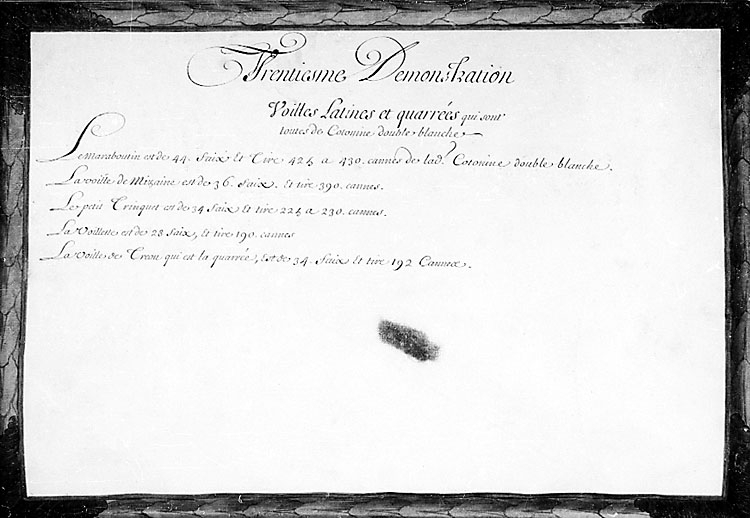 Trentiesme Demonstration
Voilles Latines et quarrées qui sont
toutes de Cotonine double blanche
Le maraboutin est de 44. Saix Et Tire 425 a 430. cannes de lad.e Cotonine double blanche.
La voille de Mizaine est de 36. Saix. Et tire 390. cannes.
Le petit Trinquet est de 34 Saix Et tire 225 a 230. cannes.
La Voillette est de 28 Saix, Et tire 190. cannes
La Voille de Treou qui est la quarrée, Est de 34. Saix Et tire 192 Cannes.